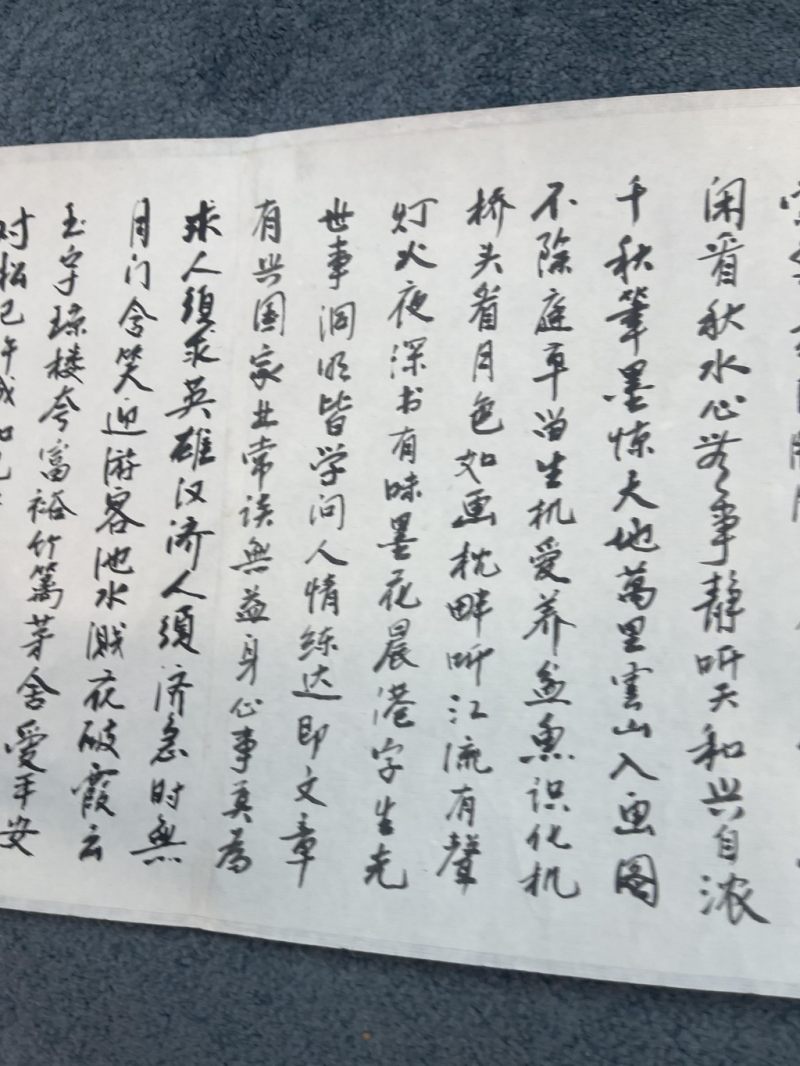 闲看秋水心無事静听天和兴自浓
千秋筆墨惊天地萬里雲山入画图
不除庭草留生机爱养盆魚识化机
桥头看月色如画枕畔听江流有聲
灯火夜深书有味墨花晨港字生光
世事洞明皆学问人情练达即文章
有兴国家业常谈無益身心事莫為
求人須求英雄汉济人須济急时無
月门含笑迎游客池水溅花破霞云
玉宇琼楼夸富裕竹篱茅舍爱平安